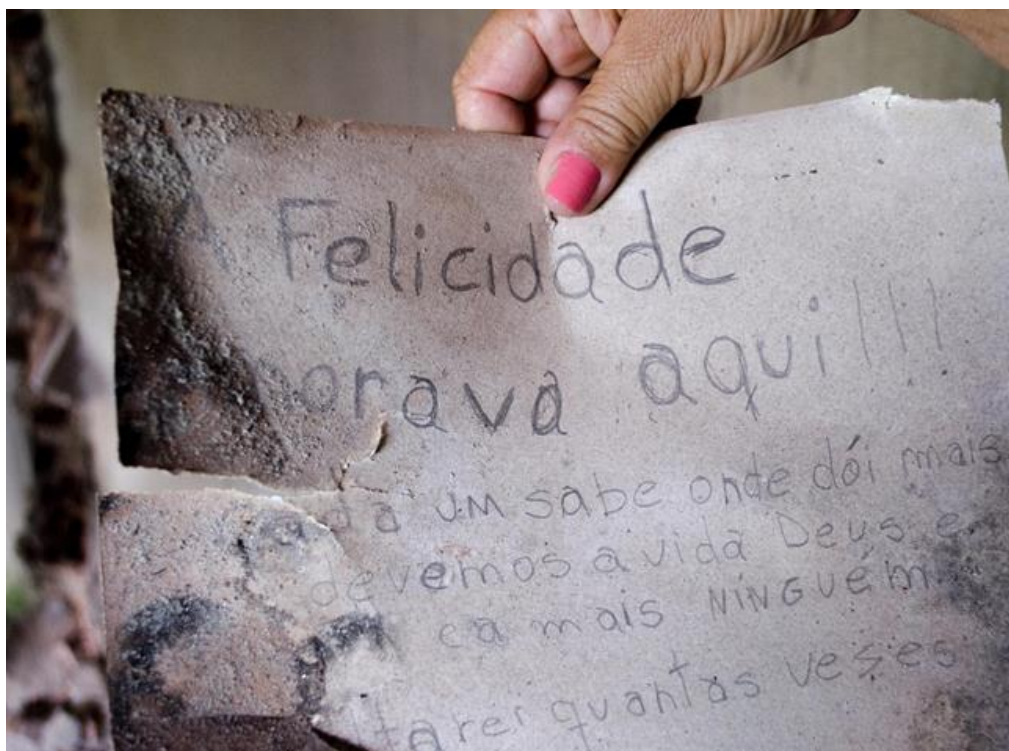 A Felicidade
orava aqui!!!
ada um sabe onde dói mais
devemos a vida Deus e
ea mais NINGUÉM
tarei quantas veses